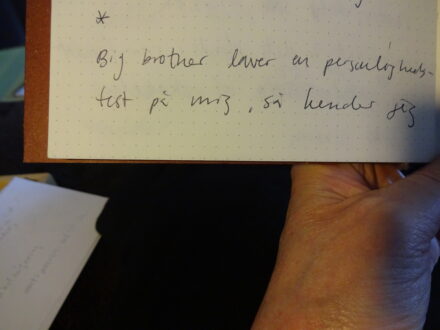 *
Big brother laver en personligheds-
test på mig, så kender jeg